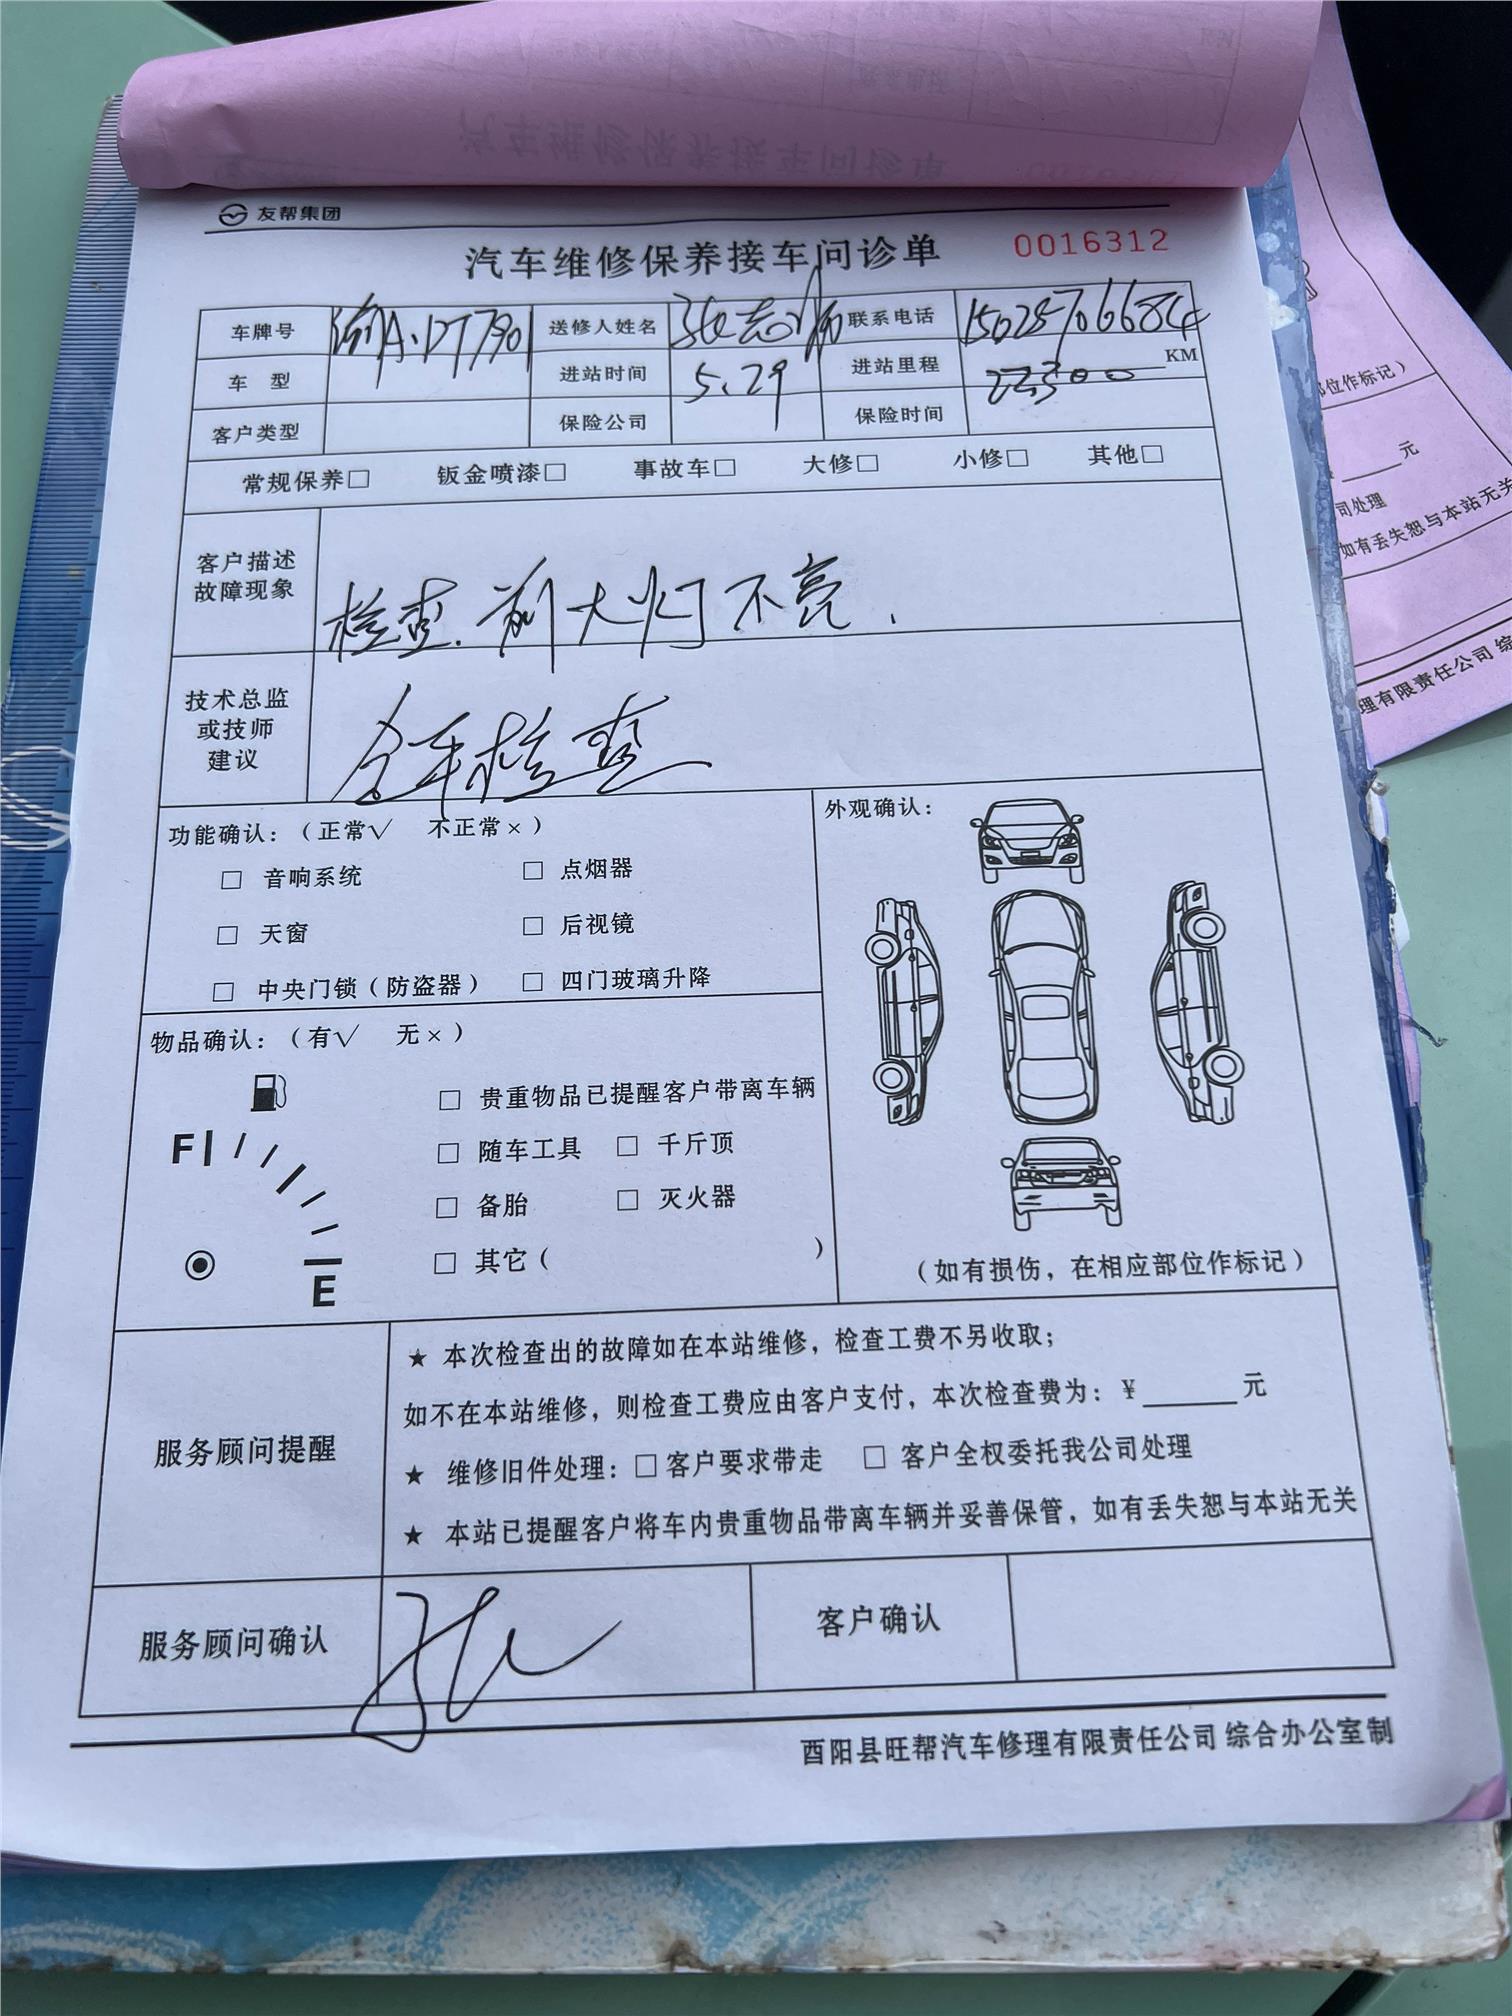 友帮集团
汽车维修保养接车问诊单 0016312
车牌号 渝A·DT790 送修人姓名 张志 联系电话 15025706684
车 型 进站时间 5.29 进站里程 22300 KM
客户类型 保险公司 保险时间
常规保养□ 钣金喷漆□ 事故车□ 大修□ 小修□ 其他□
客户描述
故障现象
检查.前大灯不亮.
技术总监
或技师
建议
全车检查
功能确认:(正常√ 不正常×)
□ 音响系统 □ 点烟器
□ 天窗 □ 后视镜
□ 中央门锁(防盗器) □ 四门玻璃升降
外观确认:
(如有损伤,在相应部位作标记)
物品确认:(有√ 无×)
F
E
□ 贵重物品已提醒客户带离车辆
□ 随车工具 □ 千斤顶
□ 备胎 □ 灭火器
□ 其它( )
服务顾问提醒
★ 本次检查出的故障如在本站维修,检查工费不另收取;
如不在本站维修,则检查工费应由客户支付,本次检查费为:¥______元
★ 维修旧件处理:□客户要求带走 □ 客户全权委托我公司处理
★ 本站已提醒客户将车内贵重物品带离车辆并妥善保管,如有丢失恕与本站无关
服务顾问确认 张 客户确认
酉阳县旺帮汽车修理有限责任公司 综合办公室制
部位作标记)
元
司处理
如有丢失恕与本站无关
理有限责任公司 综